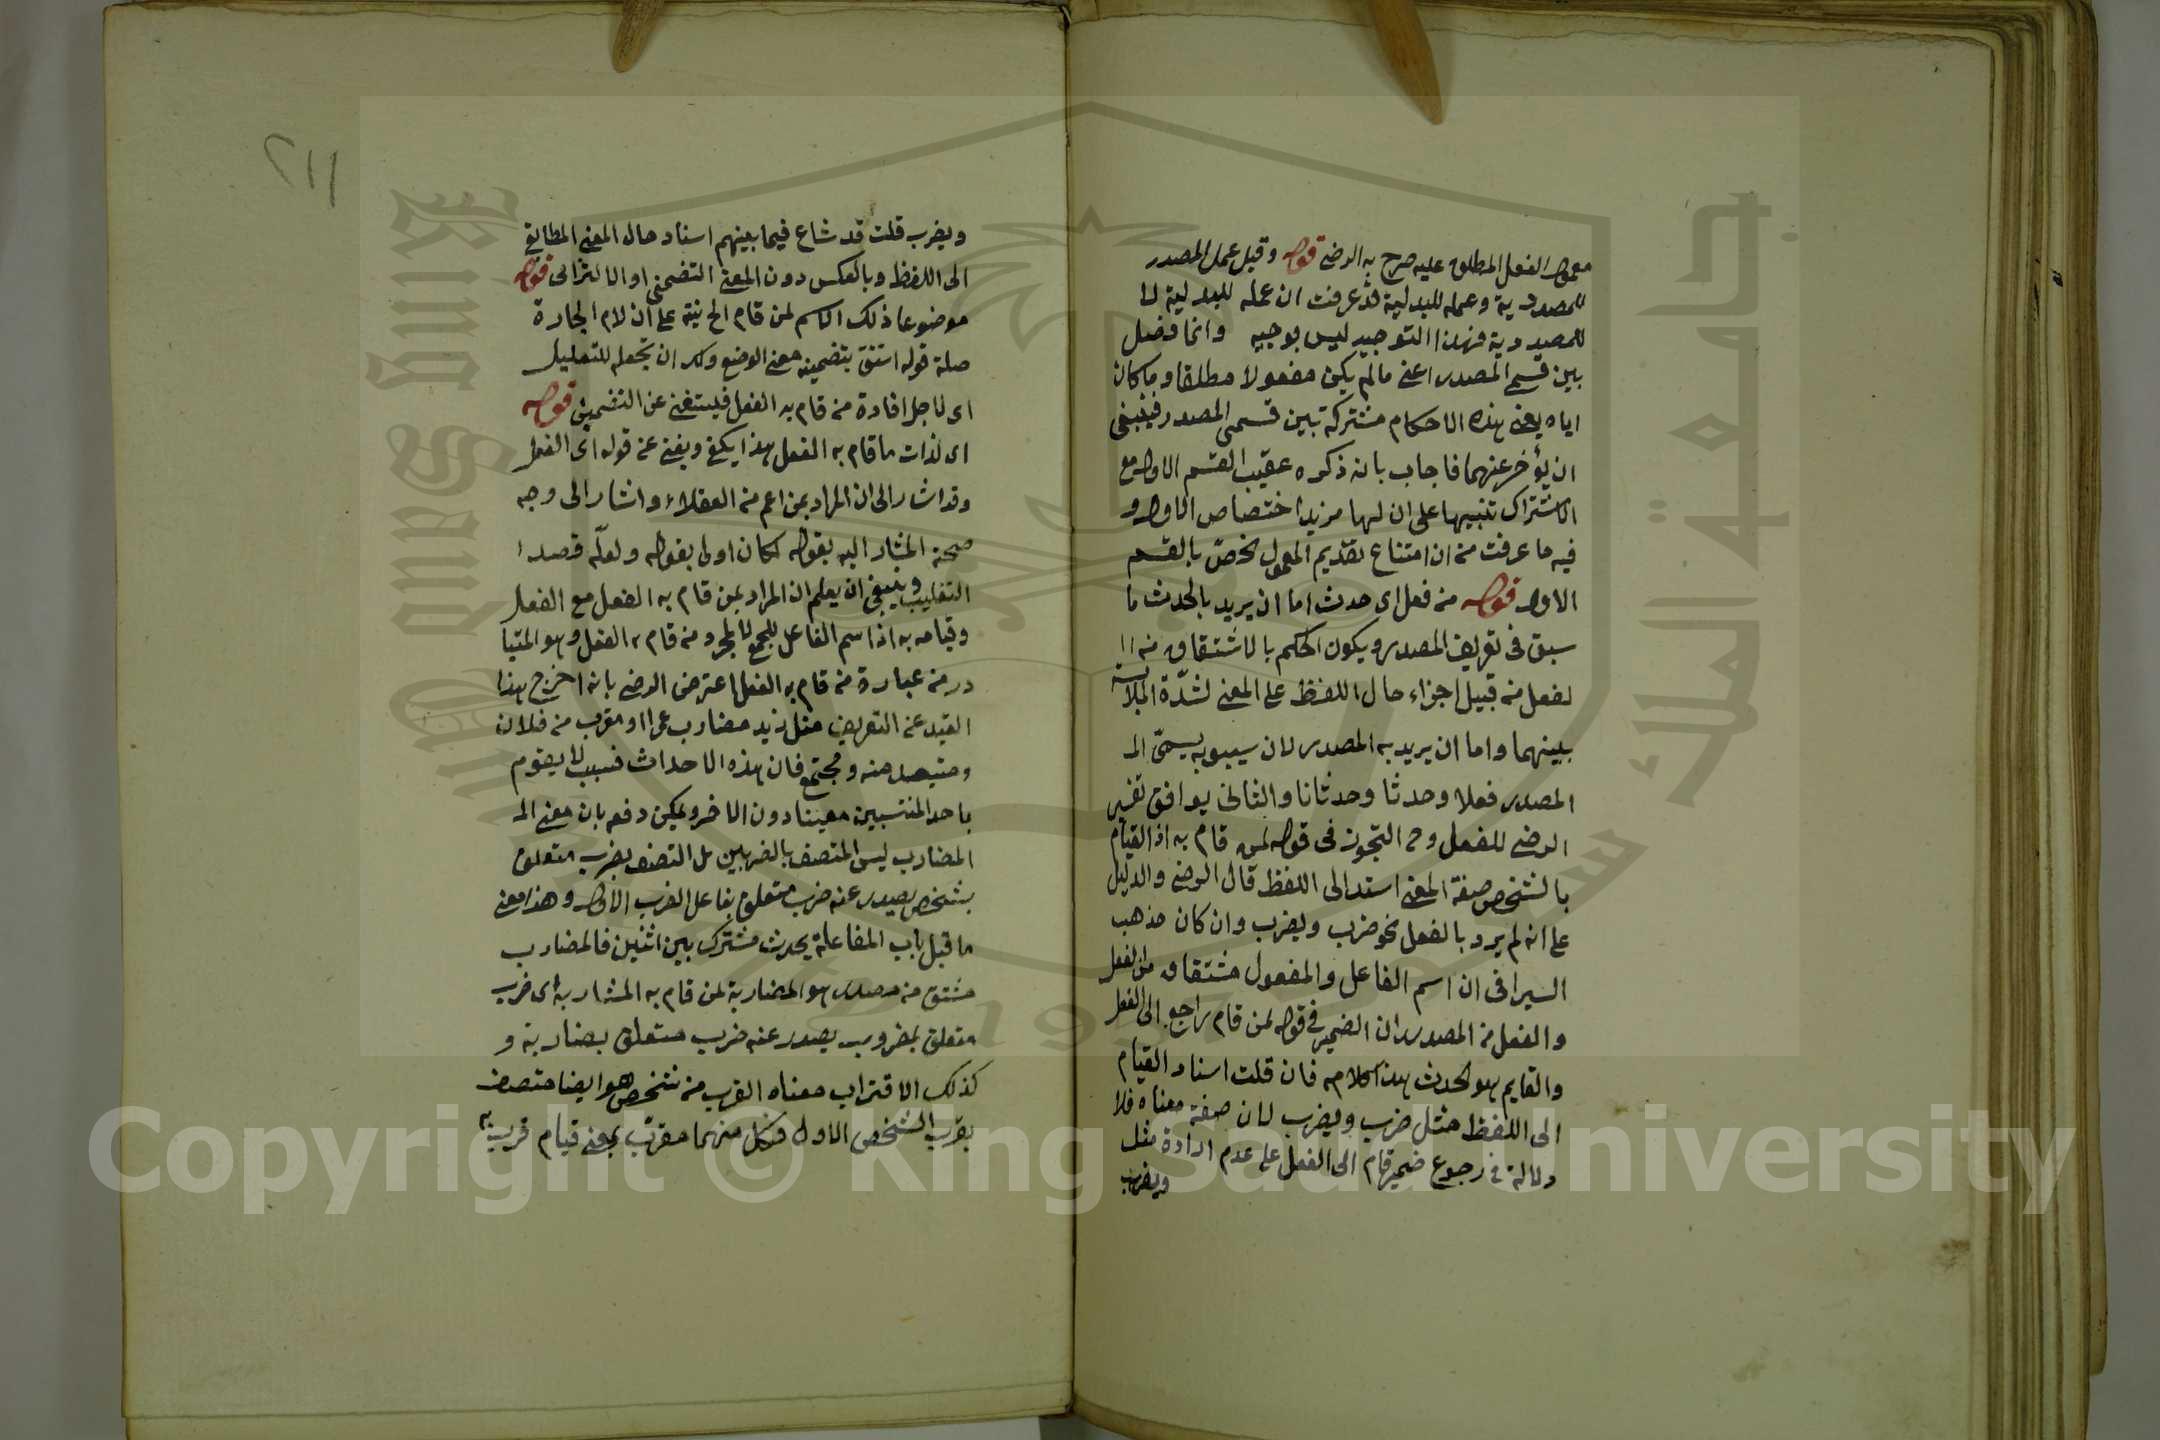 معمول الفعل المطلق عليه صرح به الرضى قوله وقيل عمل المصدر
للمصدرية وعمله للبدلية قد عرفت ان عمله للبدلية لا
للمصدرية فهذا التوجيه ليس بوجيه وانما فصل
بين قسمى المصدر اعنى مالم يكن مفعولا مطلقا وما كان
اياه يعنى هذه الاحكام مشتركة بين قسمى المصدر فينبغى
ان يؤخر عنهما فاجاب بانه ذكره عقيب القسم الاول مع
الاشتراك تنبيها على ان لها مزيد اختصاص الاول و
فيه ما عرفت من ان امتناع تقديم المعمول يخص بالقسم
الاول قوله من فعل اى حدث اما ان يريد بالحدث ما
سبق فى تعريف المصدر ويكون الحكم بالاشتقاق منه ا
لفعل من قبيل اجراء حال اللفظ على المعنى لشدة الملابسة
بينهما واما ان يريد به المصدر لان سيبويه يسمى الـ
المصدر فعلا وحدثا وحدثانا والثانى يوافق تفسير
الرضى للفعل وح التجوز فى قوله لمن قام به اذ القيام
بالشخص صفة المعنى اسند الى اللفظ قال الرضى والدليل
على انه لم يرد بالفعل نحو ضرب ويضرب وان كان مذهب
السيرافى ان اسم الفاعل والمفعول مشتقان من الفعل
والفعل من المصدر ان الضمير فى قوله لمن قام راجع الى الفعل
والقايم هو الحدث هذا كلامه فان قلت اسناد القيام
الى اللفظ مثل ضرب ويضرب لان صفة معناه فلا
دلالة فى رجوع ضمير قام الى الفعل على عدم ارادة مثل
ويضرب
٢١١
ويضرب قلت قد شاع فيما بينهم اسناد حال المعنى المطابقى
الى اللفظ وبالعكس دون المعنى التضمنى او الالتزامى قوله
موضوعا ذلك الاسم لمن قام الخ نبه على ان لام الجارة
صلة قوله اشتق بتضمينه معنى الوضع ولك ان تجعله للتعليل
اى لاجل افادة من قام به الفعل فيستغنى عن التضمين قوله
اى لذات ما قام به الفعل هذا يكفى ويغنى عن قوله اى الفعل
وقد اشار الى ان المراد بمن اعم من العقلاء واشار الى وجه
صحة المشار اليه بقوله لكان اولى بقوله ولعله قصد ا
التغليب وينبغى ان يعلم ان المراد بمن قام به الفعل مع الفعل
وقيامه به اذ اسم الفاعل للجمع لا لمجرد من قام به الفعل وهو المتبا
در من عبارة من قام به الفعل اعترض الرضى بانه اخرج بهذا
القيد عن التعريف مثل زيد مضارب عمرا او مقرب من فلان
ومتبعد منه ومجتمع فان هذه الاحداث نسب لا يقوم
باحد المنتسبين معينا دون الاخر ويمكن دفعه بان معنى الـ
المضارب ليس المتصف بالضربين بل المتصف بضرب متعلق
بشخص يصدر عنه ضرب متعلق بفاعل الضرب الاول وهذا معنى
ما قيل باب المفاعلة يحدث مشترك بين اثنين فالمضارب
مشتق من مصدر هو المضاربة لمن قام به المشاربة اى ضرب
متعلق بمضروب يصدر عنه ضرب متعلق بضاربه و
كذلك الاقتراب معناه القرب من شخص هو ايضا متصف
بقرب الشخص الاول فكل منهما مقرب بمعنى قيام قرب به
Copyright © King Saud University
جامعة الملك سعود
King Saud University
1957